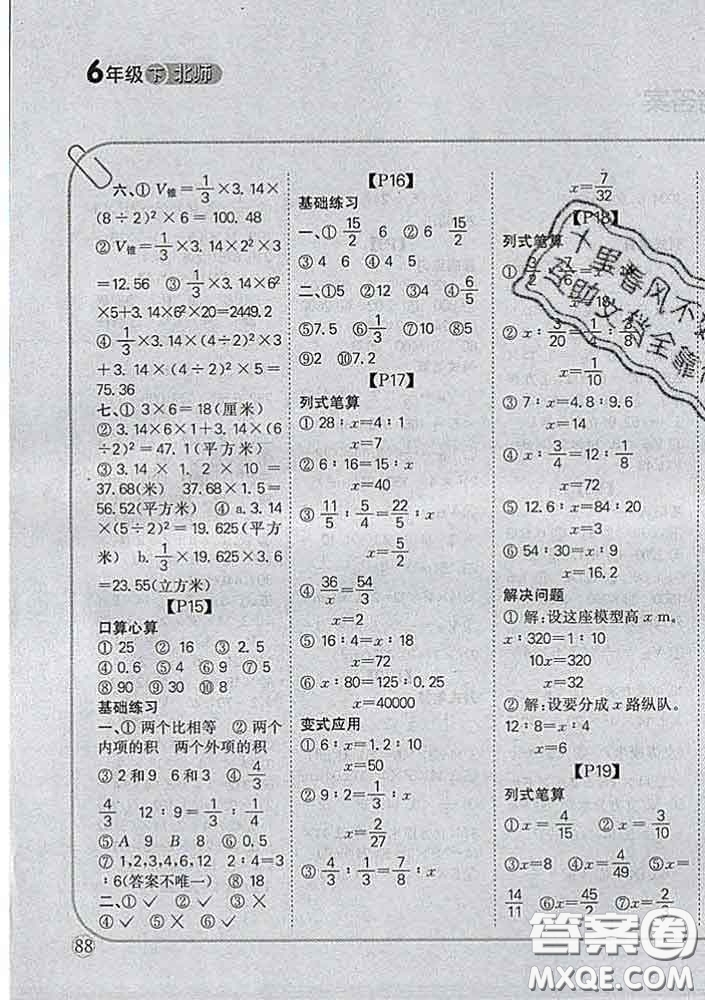 6年级 下 北师
六、① V锥=1/3×3.14×
(8÷2)²×6=100.48
② V锥=1/3×3.14×2²×3
=12.56 ③ 1/3×3.14×6²
×5+3.14×6²×20=2449.2
④ 1/3×3.14×(4÷2)²×3
+3.14×(4÷2)²×5=
75.36
七、① 3×6=18(厘米)
② 3.14×6×1+3.14×(6
÷2)²=47.1(平方米)
③ 3.14×1.2×10=
37.68(米) 37.68×1.5=
56.52(平方米) ④ a. 3.14
×(5÷2)²=19.625(平方
米) b. 1/3×19.625×3.6
=23.55(立方米)
【P15】
口算心算
① 25 ② 16 ③ 2.5
④0.6 ⑤ 15 ⑥9 ⑦4
⑧90 ⑨ 30 ⑩ 8
基础练习
一、① 两个比相等 ② 两个
内项的积 两个外项的积
③ 2和9 6和3 ④ 4/3
4/3 12∶9=1/3∶1/4
⑤ A 9 B 8 ⑥ 0.5
⑦ 1,2,3,4,6,12 2∶4=3
∶6(答案不唯一) ⑧ 18
二、① ✓ ② ✓ ③ ✕
④ ✕ ⑤ ✓ ⑥ ✓
88
【P16】
基础练习
一、① 15/2 6 ② 6 15/2
③ 4 6 ④ 4 15
二、①5 ②12 ③4 ④ 6/5
⑤7.5 ⑥ 1/3 ⑦10 ⑧0.6
⑨2 ⑩7.2
【P17】
列式笔算
① 28∶x=4∶1
x=7
② 6∶16=15∶x
x=40
③ 11/5∶5/4=22/5∶x
x=5/2
④ 36/x=54/3
x=2
⑤ 16∶4=x∶18
x=72
⑥ x∶80=125∶0.25
x=40000
变式应用
① 6∶x=1.2∶10
x=50
② 9∶2=1/3∶x
x=2/27
③ 4/3∶1/3=7/8∶x
x=7/32
【P18】
列式笔算
② x∶3/20=1/5∶
x=1/10
③ 7∶x=4.8∶9.6
x=14
④ x∶3/4=12∶1/8
x=72
⑤ 12.6∶x=84∶20
x=3
⑥ 54∶30=x∶9
x=16.2
解决问题
① 解:设这座模型高 x m。
x∶320=1∶10
10x=320
x=32
② 解:设要分成 x 路纵队。
12∶8=x∶4
x=6
【P19】
列式笔算
①x=4/15 ②x=3/10
③x=8 ④x=4/49 ⑤x=
14/11 ⑥x=45/2 ⑦x=2/9
十里春风不
答案圈
MXQE.COM